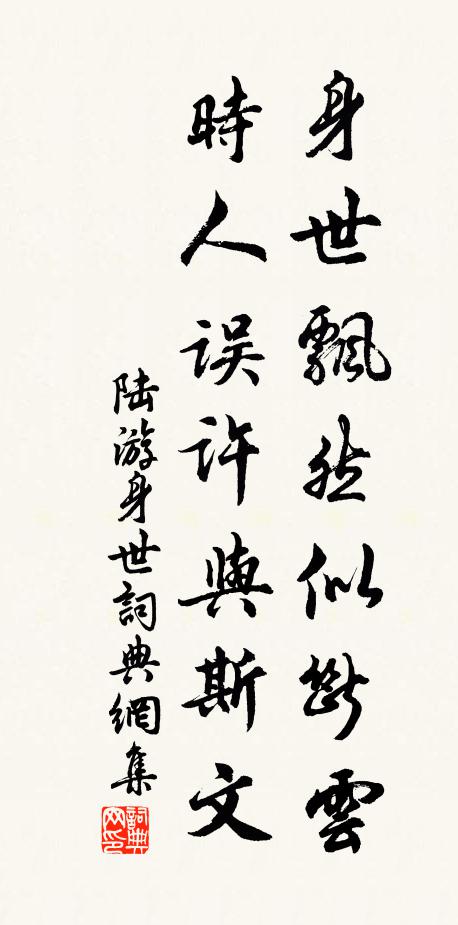 身世飄然似斷雲
時人误許與斯文
陆游身世詞典網集
詞典网印